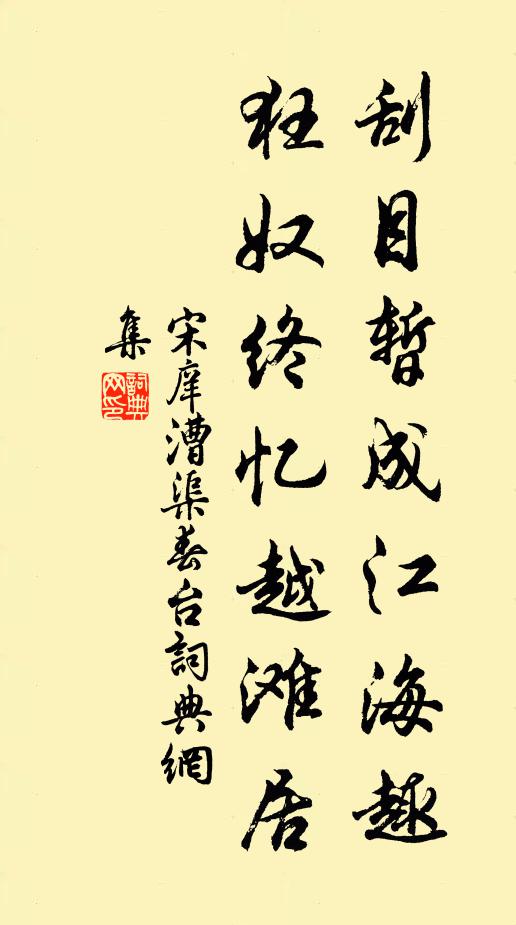 刮目暂成江海趣
狂奴终忆越滩居
宋庠漕渠春台詞典網
集
詞典网印